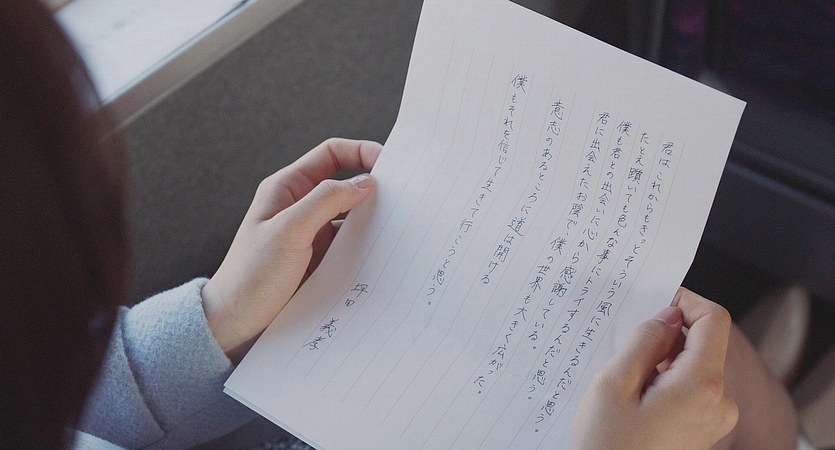 君は、これからもきっとそういう風に生きるんだと思う。
たとえ躓いても色んな事にトライするんだと思う。
僕も君との出会いに心から感謝している。
君に出会えたお陰で、僕の世界も大きく広がった。
意志のあるところに道は開ける
僕もそれを信じて生きて行こうと思う。
坪田 義孝